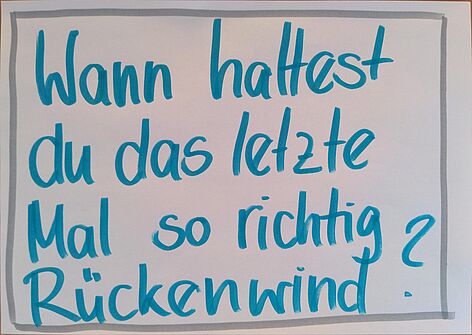 Wann hattest
du das letzte
Mal so richtig
Rückenwind?